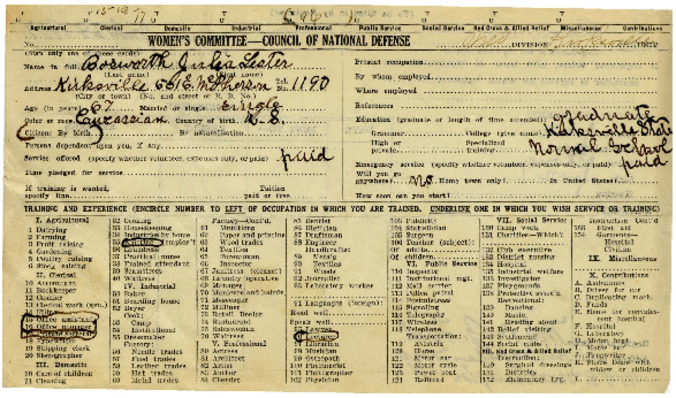 Agricultural Clerical Domestic Industrial Professional Public Service Social Service Red Cross & Allied Relief Miscellaneous Contributions
WOMEN'S COMMITTEE—COUNCIL OF NATIONAL DEFENSE
DIVISION
Name in full Bosworth Julia Lester
(Last name)
Address Kirksville 551 E. McPherson Tel. No. 1190
(City or town) (No. and street or R. D. No.)
Age (in years) 67 Married or single Single
Color or race Country of birth U.S.
Citizen: By birth By naturalization
Persons dependent upon you, if any
Service offered (specify whether volunteer, expenses only, or paid) paid
Time pledged for service
If training is wanted, specify line Tuition paid or free
Present occupation
By whom employed
Where employed
References
Education (graduate or length of time attended) graduate
Grammar College (give name) Kirksville State
High or private Specialized training Normal School
Emergency service (specify whether volunteer, expenses only, or paid) paid
Will you go anywhere? no Home town only? In United States?
How soon can you start?
TRAINING AND EXPERIENCE (ENCIRCLE NUMBER TO LEFT OF OCCUPATION IN WHICH YOU ARE TRAINED. UNDERLINE ONE IN WHICH YOU WISH SERVICE OR TRAINING)
I. Agricultural
1 Dairying
2 Farming
3 Fruit raising
4 Gardening
5 Poultry raising
6 Stock raising
II. Clerical
10 Accountant
11 Bookkeeper
12 Cashier
13 Clerical work (gen.)
14 Filing
15 Office assistant
16 Office manager
18 Typewriting
19 Shipping clerk
20 Stenographer
III. Domestic
20 Care of children
21 Cleaning
22 Cooking
23 Housekeeping
24 Industries by home
26 Laundress
27 Practical nurse
28 Trained attendant
29 Seamstress
30 Waitress
IV. Industrial
30 Baker
31 Boarding home
32 Buyer
Cook:
53 Camp
54 Institutional
55 Dressmaker
Factory:
56 Needle trades
57 Food trades
58 Leather trades
59 Hat trades
60 Metal trades
Factory—Cont'd.
61 Munitions
62 Paper and printing
63 Wood trades
64 Textiles
65 Forewoman
66 Inspector
67 Janitress (cleaner)
68 Laundry operative
69 Manager
71 Messenger
72 Milliner
73 Retail Dealer
74 Restaurant
75 Saleswoman
76 Waitress
V. Professional
80 Actress
81 Architect
82 Artist
83 Author
84 Chemist
85 Dentist
86 Dietitian
87 Draftsman
88 Engineer
Handicrafter
89 Metals
90 Textiles
91 Woods
92 Journalist
93 Laboratory worker
94 Languages (foreign):
Read well
Speak well
95 Lawyer
96 Lecturer
97 Librarian
98 Musician
100 Photographer
102 Physician
103 Publicity
104 Statistician
105 Surgeon
106 Teacher (subject):
Of adults
Of children
VI. Public Service
110 Inspector
111 Institutional mgt.
112 Mail carrier
113 Police patrol
114 Postmistress
115 Signaling
116 Telegraphy
117 Wireless
118 Telephone
Transportation:
119 Aviation
120 Horse
121 Motor car
122 Motor cycle
123 Power boat
124 Railroad
VII. Social Service
130 Camp work
131 Charities—Which?
132 Club executive
133 District nursing
134 Hospital
135 Industrial welfare
136 Investigator
137 Playgrounds
138 Protective assn.
Recreational:
139 Dancing
140 Music
141 Reading aloud
142 Settlement
VIII. Red Cross & Allied Relief
150 Surgical dressings
151 Dietetics
152 Elementary hyg.
Instruction Cont'd
153 First aid
154 Garments—
Hospital
Civilian
IX. Miscellaneous
X. Contributions
A. Ambulance
B. Driver for car
C. Duplicating mach.
D. Funds
E. Home for convalescent hospital
F. Hospital
G. Laboratory
H. Motor boat
I. Motor car
J. Typewriter
K. Share home with widow or children